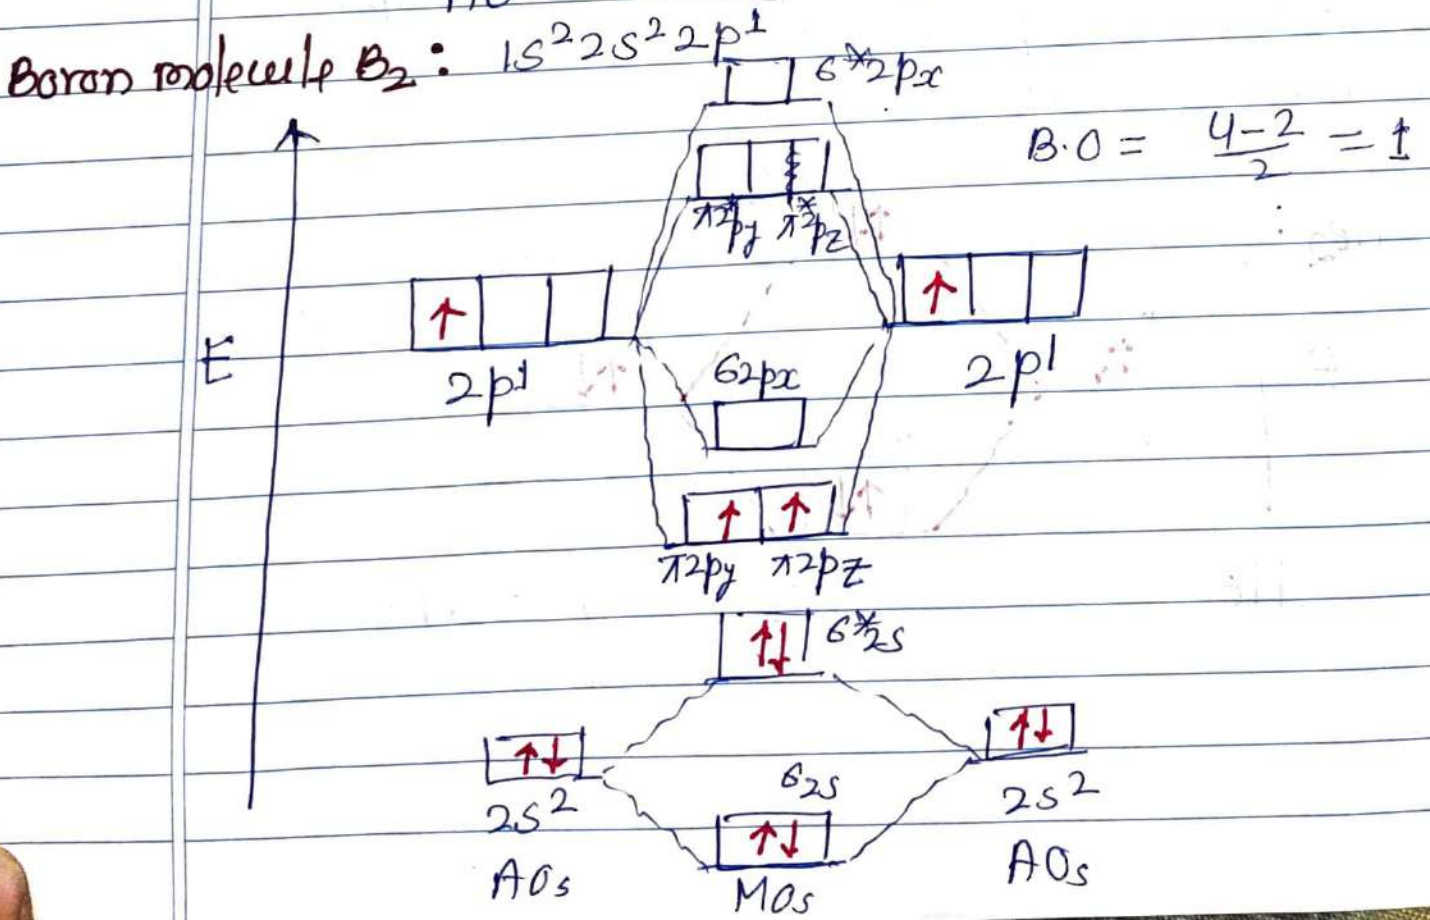 Boron molecule B₂ : 1S² 2S² 2p¹
6*2px
B.O = 4-2/2 = 1
π*2py π*2pz
E
2p¹
62px
2p¹
π2py π2pz
6*2s
2s²
62s
2s²
AOs
MOs
AOs